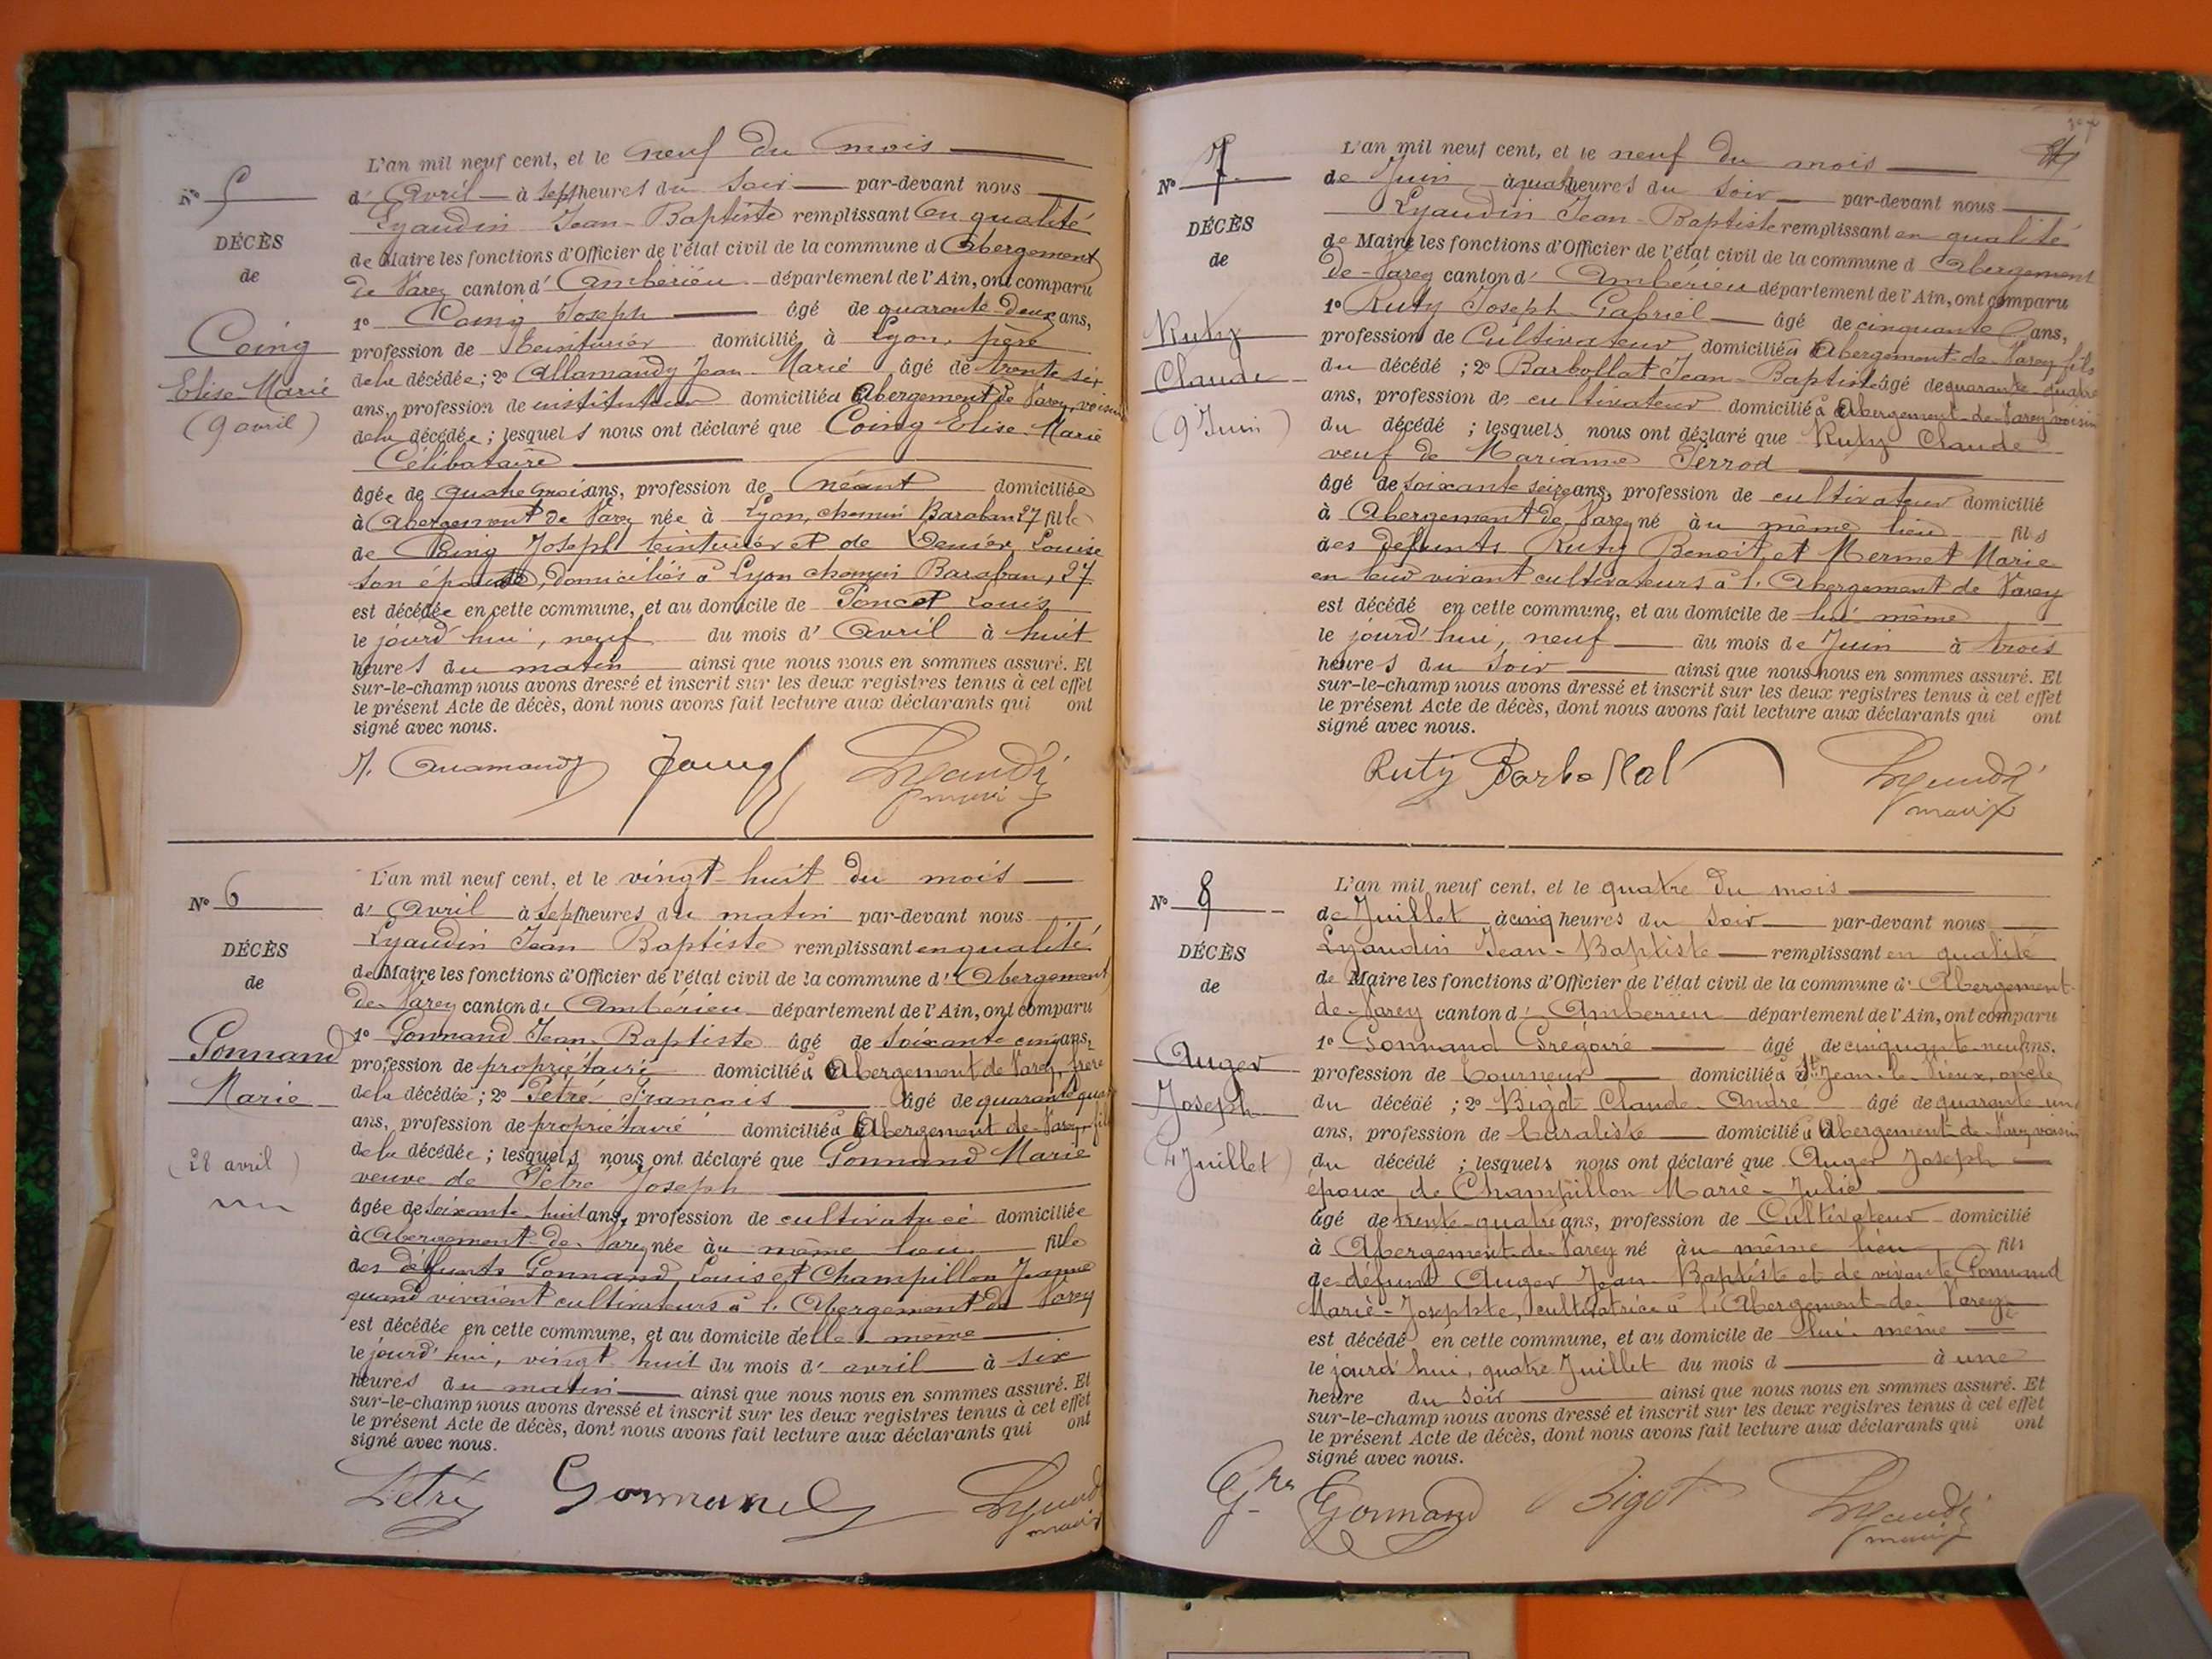 N° 5
DÉCÈS
de
Coing
Elise Marie
(9 avril)
L'an mil neuf cent, et le neuf du mois
d'Avril à sept heures du soir par-devant nous
Lyaudin Jean-Baptiste remplissant en qualité
de Maire les fonctions d'Officier de l'état civil de la commune d'Abergement
de Varey canton d'Ambérieu département de l'Ain, ont comparu
1° Coing Joseph âgé de quarante-deux ans,
profession de teinturier domicilié à Lyon, père
de la décédée; 2° Allamandy Jean-Marie âgé de trente six
ans, profession de instituteur domicilié à Abergement de Varey, voisin
de la décédée; lesquels nous ont déclaré que Coing Elise Marie
Célibataire
âgée de quatre mois ans, profession de néant domiciliée
à Abergement de Varey née à Lyon, chemin Baraban 27 fille
de Coing Joseph teinturier et de Denier Louise
son épouse, domiciliés à Lyon chemin Baraban, 27
est décédée en cette commune, et au domicile de Poncet Louis
le jourd'hui, neuf du mois d'Avril à huit
heures du matin ainsi que nous nous en sommes assuré. Et
sur-le-champ nous avons dressé et inscrit sur les deux registres tenus à cet effet
le présent Acte de décès, dont nous avons fait lecture aux déclarants qui ont
signé avec nous.
Lyaudin
maire
N° 6
DÉCÈS
de
Gonnand
Marie
(28 avril)
L'an mil neuf cent, et le vingt-huit du mois
d'Avril à sept heures du matin par-devant nous
Lyaudin Jean Baptiste remplissant en qualité
de Maire les fonctions d'Officier de l'état civil de la commune d'Abergement
de-Varey canton d'Ambérieu département de l'Ain, ont comparu
1° Gonnand Jean-Baptiste âgé de soixante cinq ans,
profession de propriétaire domicilié à Abergement de Varey, frère
de la décédée; 2° Pétré François âgé de quarante quatre
ans, profession de propriétaire domicilié à Abergement-de-Varey, fils
de la décédée; lesquels nous ont déclaré que Gonnand Marie
veuve de Pétré Joseph
âgée de soixante-huit ans, profession de cultivatrice domiciliée
à Abergement-de-Varey née au même lieu fille
des défunts Gonnand Louis et Champillon Jeanne
quand vivaient cultivateurs à l'Abergement de Varey
est décédée en cette commune, et au domicile d'elle même
le jourd'hui, vingt huit du mois d'avril à six
heures du matin ainsi que nous nous en sommes assuré. Et
sur-le-champ nous avons dressé et inscrit sur les deux registres tenus à cet effet
le présent Acte de décès, dont nous avons fait lecture aux déclarants qui ont
signé avec nous.
Pétré Gonnand Lyaudin
maire
N° 7
DÉCÈS
de
Ruty
Claude
(9 Juin)
L'an mil neuf cent, et le neuf du mois
de Juin à quatre heures du soir par-devant nous
Lyaudin Jean-Baptiste remplissant en qualité
de Maire les fonctions d'Officier de l'état civil de la commune d'Abergement
de-Varey canton d'Ambérieu département de l'Ain, ont comparu
1° Ruty Joseph-Gabriel âgé de cinquante ans,
profession de Cultivateur domicilié à Abergement-de-Varey fils
du décédé; 2° Barbollat Jean-Baptiste âgé de quarante-quatre
ans, profession de cultivateur domicilié à Abergement-de-Varey voisin
du décédé; lesquels nous ont déclaré que Ruty Claude
veuf de Marianne Perrod
âgé de soixante seize ans, profession de cultivateur domicilié
à Abergement de Varey né au même lieu fils
des défunts Ruty Benoit et Mermet Marie
en leur vivant cultivateurs à l'Abergement de Varey
est décédé en cette commune, et au domicile de lui même
le jourd'hui, neuf du mois de Juin à trois
heures du soir ainsi que nous nous en sommes assuré. Et
sur-le-champ nous avons dressé et inscrit sur les deux registres tenus à cet effet
le présent Acte de décès, dont nous avons fait lecture aux déclarants qui ont
signé avec nous.
Ruty Barbollat Lyaudin
maire
N° 8
DÉCÈS
de
Auger
Joseph
(4 Juillet)
L'an mil neuf cent, et le quatre du mois
de Juillet à cinq heures du soir par-devant nous
Lyaudin Jean-Baptiste remplissant en qualité
de Maire les fonctions d'Officier de l'état civil de la commune d'Abergement-
de-Varey canton d'Ambérieu département de l'Ain, ont comparu
1° Gonnand Grégoire âgé de cinquante-neuf ans,
profession de tourneur domicilié à St Jean-le-Vieux, oncle
du décédé; 2° Bigot Claude-André âgé de quarante un
ans, profession de domicilié à Abergement-de-Varey voisin
du décédé; lesquels nous ont déclaré que Auger Joseph
époux de Champillon Marie-Julie
âgé de trente-quatre ans, profession de Cultivateur domicilié
à Abergement-de-Varey né au même lieu fils
de défunt Auger Jean-Baptiste et de vivante Gonnand
Marie-Josephte, cultivatrice à l'Abergement-de-Varey
est décédé en cette commune, et au domicile de lui-même
le jourd'hui, quatre Juillet du mois d à une
heure du soir ainsi que nous nous en sommes assuré. Et
sur-le-champ nous avons dressé et inscrit sur les deux registres tenus à cet effet
le présent Acte de décès, dont nous avons fait lecture aux déclarants qui ont
signé avec nous.
Gre Gonnand Bigot Lyaudin
maire